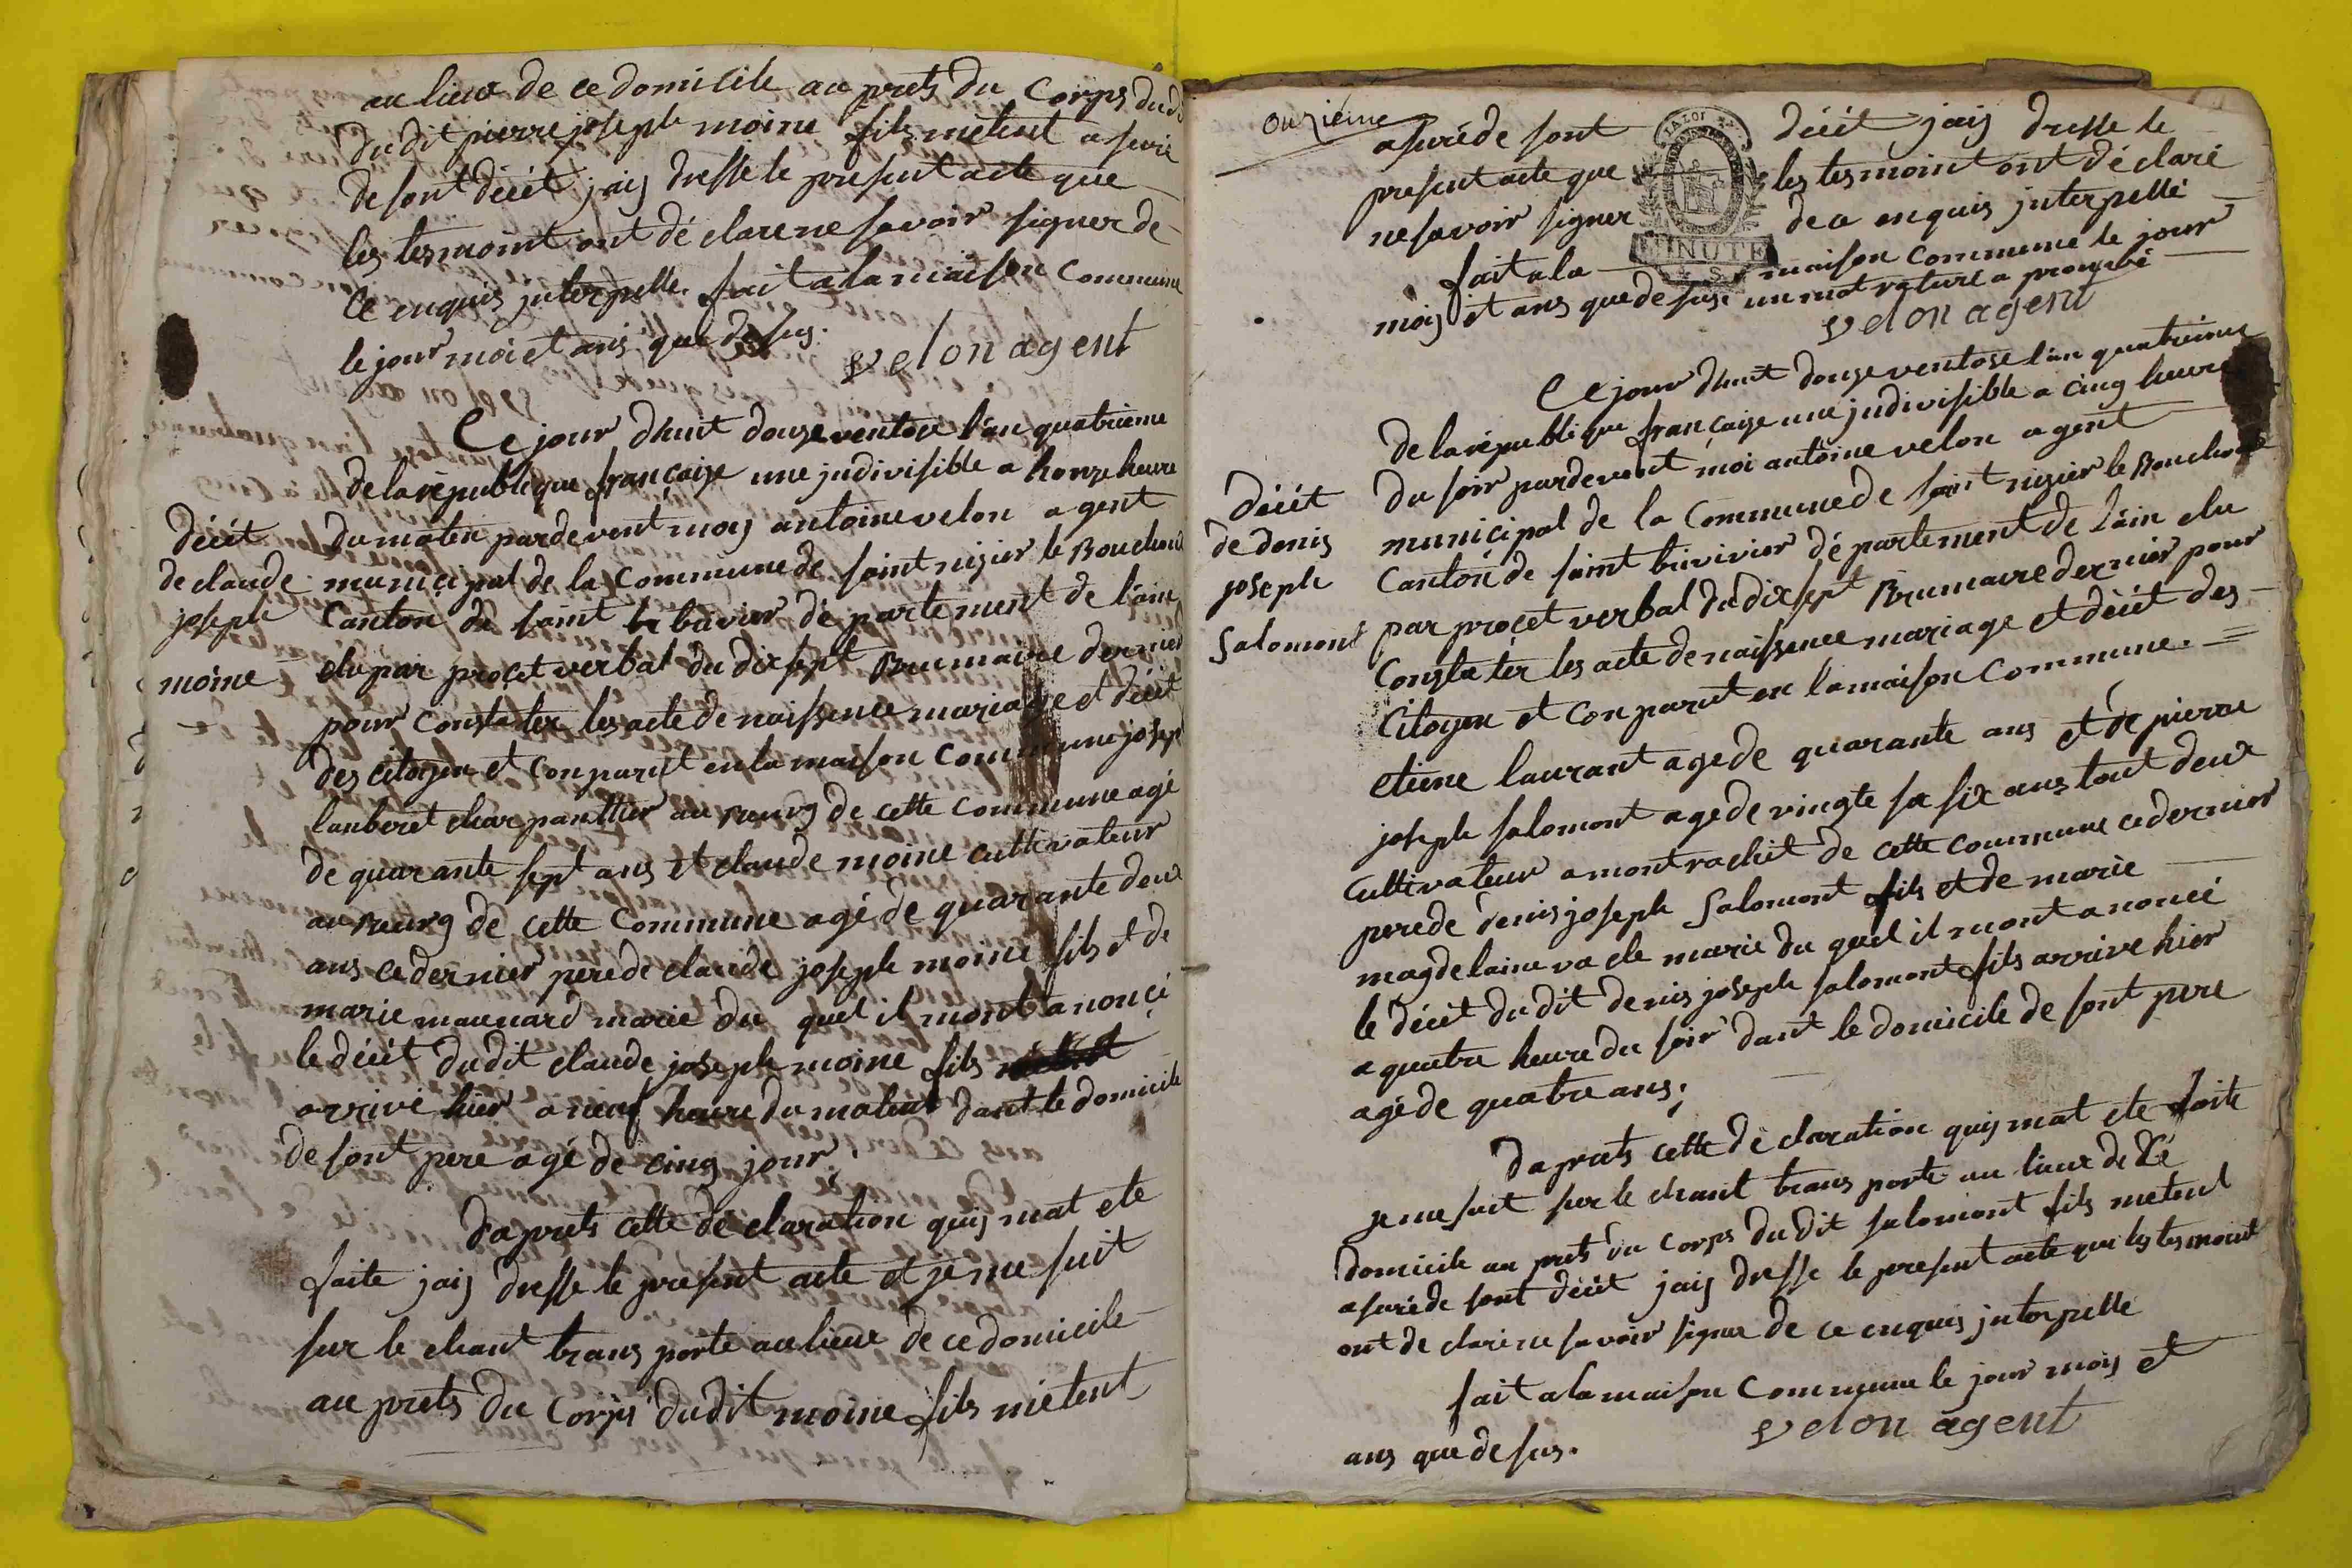 au lieux de ce domicile au prets du Corps dud
dudit pierre joseph moine fils metent asuré
de sont décét jaij dresse le present acte que
les tesmoint ont déclare ne savoir signer de
ce enquis juterpelle. fait a la maison Commune
le jour moi et ans que desus.
velon agent
Ce jour dhuit douze ventose l'an quatrieme
de la république française une jndivisible a honze heure
du matin pardevent moij antoine velon agent
municipal de la Commune de saint nizier le Bouchoud
Canton de saint tr bivier département de l'ain
elu par procet verbal du dix sept Brumaire dernier
pour Constater les acte de naissence mariage et décét
des citoyen et Conparut en la maison Commune joseph
lanberet charpanttier au Bourg de cette Commune agé
de quarante sept ans et claude moine cultivateur
au Bourg de cette Commune agé de quarante deux
ans ce dernier pere de claude joseph moine fils et de
marie maunard marie du quel il mont anoncé
le décét dudit claude joseph moine fils
arrive hier a neuf heure du matent dant le domicile
de sont pere agé de cinq jour,
daprets cette déclaration quij mat ete
faite jaij dresse le present acte et je me suit
sur le chant trans porte au lieux de ce domicile
au prets du Corps dudit moine fils metent
décét
de claude
joseph
moine
onzième
asuré de sont décét jaij dresse le
present acte que les tesmoint ont déclaré
ne savoir signer de ce enquis juterpellé
fait a la maison Commune le jour
mois et ans que desus. un mot rature a prouvé
velon agent
MINUTE
Ce jour dhuit douze ventose l'an quatrieme
de la république française une jndivisible a cinq heure
du soir pardevent moi antoine velon agent
municipal de la Commune de saint nizier le Bouchoud
Canton de saint trivivier département de l'ain elu
par procet verbal du dix sept Brumaire dernier pour
Constater les acte de naissence mariage et décét des
Citoyen et Conparut en la maison Commune.
etiene laurant agede quarante ans et de pierre
joseph salomont agede vingte sa six ans tout deux
Cultivateur a montrachit de cette Commune ce dernier
pere de denis joseph Salomont fils et de marie
magdelaine va ele marie du quel il mont anoncé
le décét dudit denis joseph salomont fils arrive hier
a quatre heure du soir dant le domicile de sont pere
agé de quatre ans;
daprets cette déclaration quij mat ete faite
je me suit sur le chant trans porte au lieux de Cé
domicile au prets du Corps dudit salomont fils metent
asuré de sont décét jaij dresse le present acte que les tesmoint
ont declare ne savoir signer de ce enquis juterpelle
fait a la maison Commune le jour mois et
ans que desus.
velon agent
décét
de denis
joseph
Salomont